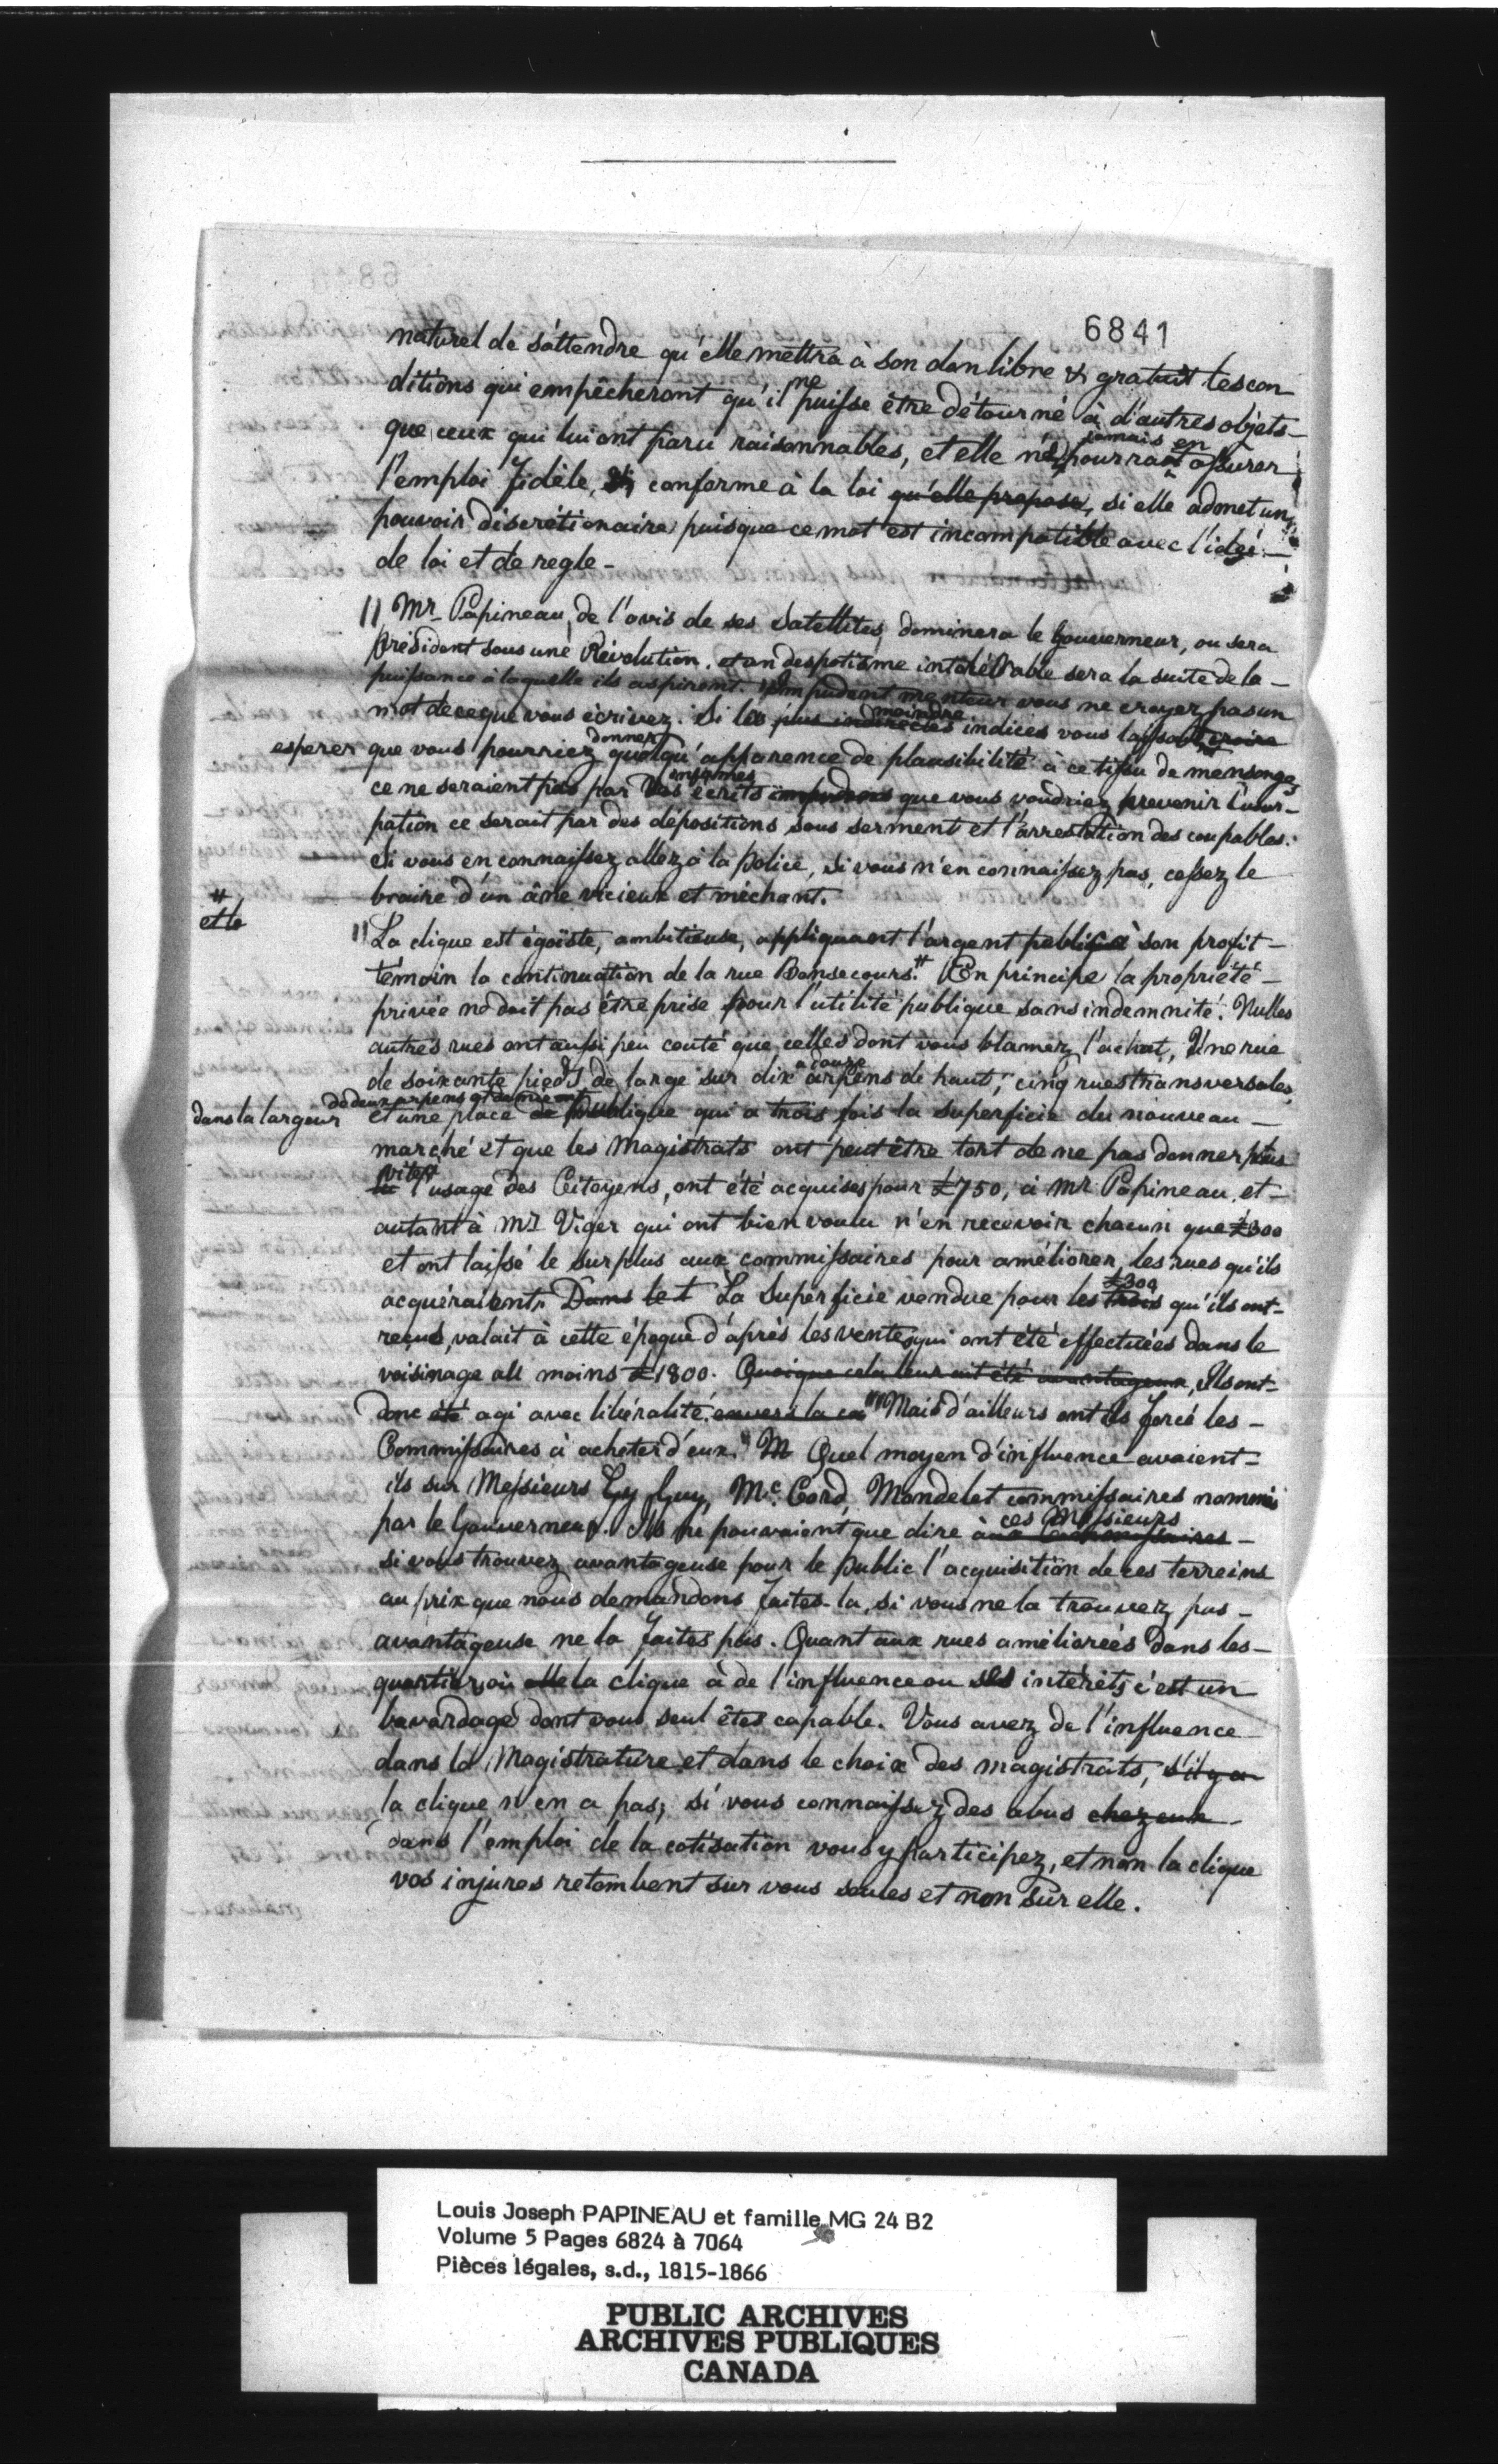 6841
naturel de s'attendre qu'elle mettra à son don libre & gratuit les con
ditions qui empêcheront qu'il ne puisse être détourné à d'autres objets
que ceux qui lui ont paru raisonnables, et elle ne pourra jamais en assurer
l'emploi fidèle, & conforme à la loi qu'elle propose, si elle admet un
pouvoir discrétionaire, puisque ce mot est incompatible avec l'idée
de loi et de regle -
" Mr Papineau, de l'avis de ses Satellites, dominera le Gouverneur, ou sera
Président sous une Révolution, et un despotisme intolérable sera la suite de la
puissance à laquelle ils aspirent. Impudent menteur vous ne croyez pas un
mot de ce que vous écrivez. Si les plus indirectes moindre indices vous laissait croire
esperer que vous pourriez donner quelqu'apparence de plausibilité à ce tissu de mensonges
ce ne seraient pas par vos infames écrits impudens que vous voudriez prevenir l'usur-
pation ce serait par des dépositions sous serment et l'arrestation des coupables.
Si vous en connaissez allez à la Police, si vous n'en connaissez pas, cessez le
braire d'un âne vicieux et méchant.
# et le
" La clique est égoïste, ambitieuse, appliquant l'argent public à son profit -
témoin la continuation de la rue Bonsecours." # En principe la propriété -
privée ne doit pas être prise pour l'utilité publique sans indemnité. Nulles
autres rues ont aussi peu couté que celles dont vous blamez l'achat, Une rue
de soixante pieds de large sur dix a douze arpens de haut, cinq rues transversales,
dans la largeur de deux arpens et demie et une place de publique qui a trois fois la superficie du nouveau -
marché et que les Magistrats ont peut être tort de ne pas donner plus
vite # à l'usage des Citoyens, ont été acquises pour £750, à Mr Papineau, et -
autant à Mr Viger qui ont bien voulu n'en recevoir chacun que £300
et ont laissé le surplus aux commissaires pour améliorer les rues qu'ils
acquéraient. Dans le t La Superficie vendue pour les trois £300 qu'ils ont -
reçus, valait à cette époque d'après les ventes qui ont été effectuées dans le
voisinage all moins £1800. Quoique cela leur ait été avantageux, Ils ont -
donc été agi avec libéralité. envers la co " Mais d'ailleurs ont ils forcé les -
Commissaires à acheter d'eux." M Quel moyen d'influence avaient -
ils sur Messieurs Gy Guy, Mc Cord, Mondelet commissaires nommés
par le Gouverneur. Ils ne pouvaient que dire à ces Messieurs aux Commissaires -
si vous trouvez avantageuse pour le public l'acquisition de ces terreins
au prix que nous demandons faites-la, si vous ne la trouvez pas -
avantageuse ne la faites pas. Quant aux rues améliorées dans les -
quartiers où elle la clique à de l'influence ou des intérêts, c'est un
bavardage dont vous seul êtes capable. Vous avez de l'influence
dans la Magistrature et dans le choix des magistrats, s'il y a
la clique n'en a pas; si vous connaissez des abus chez eux
dans l'emploi de la cotisation vous y participez, et non la clique
vos injures retombent sur vous seules et non sur elle.
Louis Joseph PAPINEAU et famille MG 24 B2
Volume 5 Pages 6824 à 7064
Pièces légales, s.d., 1815-1866
PUBLIC ARCHIVES
ARCHIVES PUBLIQUES
CANADA